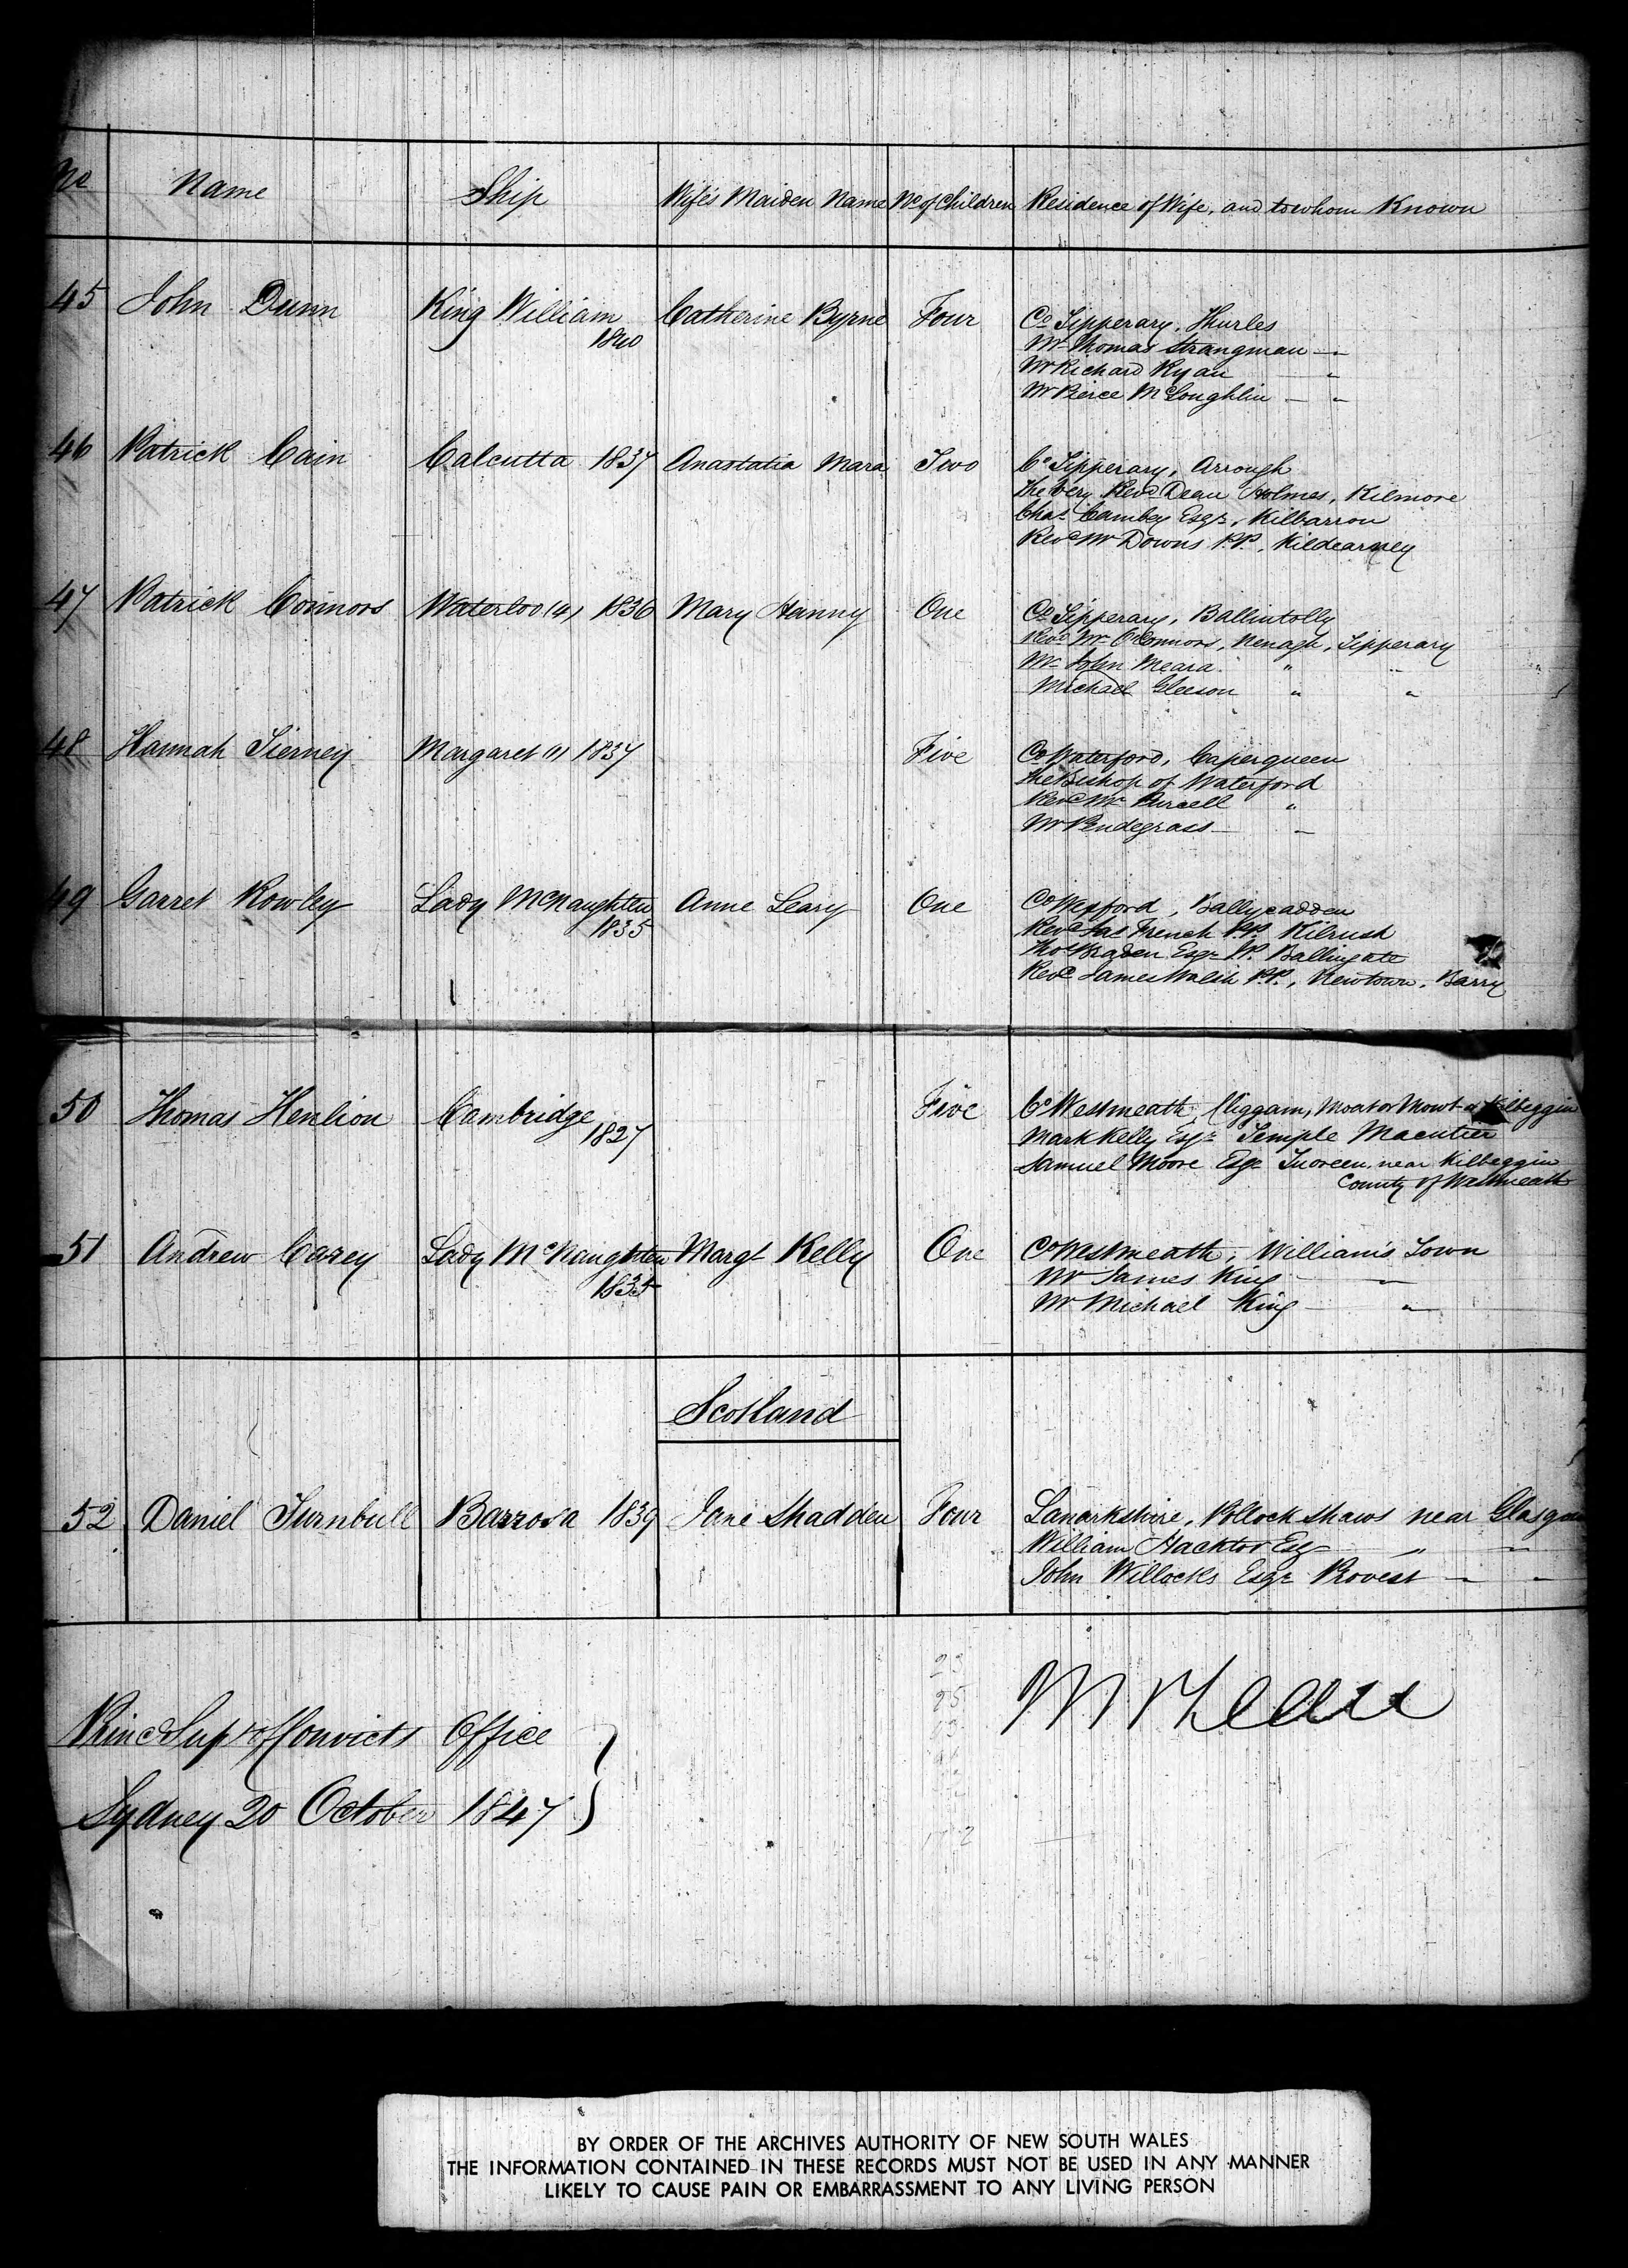 No Name Ship Wife's Maiden Name No of Children Residence of Wife, and to whom Known
45 John Dunn King William 1840 Catherine Byrne Four Co Tipperary, Thurles
Mr Thomas Strangman — "
Mr Richard Ryan — "
Mr Pierce McLoughlin — "
46 Patrick Cain Calcutta 1837 Anastatia Mara Two Co Tipperary, Arrough
The Very Revd Dean Holmes, Kilmore
Chas Cambey Esqr, Kilbarron
Revd Mr Downs P.P., Kildearney
47 Patrick Connors Waterloo (4) 1836 Mary Hanny One Co Tipperary, Ballintolly
Revd Mr O'Connors, Nenagh, Tipperary
Mr John Meara " "
Michael Gleeson " "
48 Hannah Tierney Margaret (1) 1837 Five Co Waterford, Caperqueen
The Bishop of Waterford
Revd Mr Purcell "
Mr Pendegrass — "
49 Garret Rowley Lady McNaughten 1835 Anne Leary One Co Wexford, Ballycadden
Revd Jas French P.P. Kilrush
Thos Braden Esqr J.P. Ballingate
Revd James Walsh P.P., Newtown, Barry
50 Thomas Henlion Cambridge 1827 Five Co Westmeath, Cliggam, Moat or Mount Kilbeggin
Mark Kelly Esqr Temple
Samuel Moore Esqr near Kilbeggin
County of Westmeath
51 Andrew Casey Lady McNaughten 1835 Margt Kelly One Co Westmeath, William's Town
Mr James King — "
Mr Michael King — "
Scotland
52 Daniel Turnbull Barrosa 1839 Jane Shadden Four Lanarkshire, Pollock Shaws near Glasgow
William Hacktor Esq — " "
John Willocks Esqr Provest — " "
Princl Supt of Convicts Office
Sydney 20 October 1847
BY ORDER OF THE ARCHIVES AUTHORITY OF NEW SOUTH WALES
THE INFORMATION CONTAINED IN THESE RECORDS MUST NOT BE USED IN ANY MANNER
LIKELY TO CAUSE PAIN OR EMBARRASSMENT TO ANY LIVING PERSON